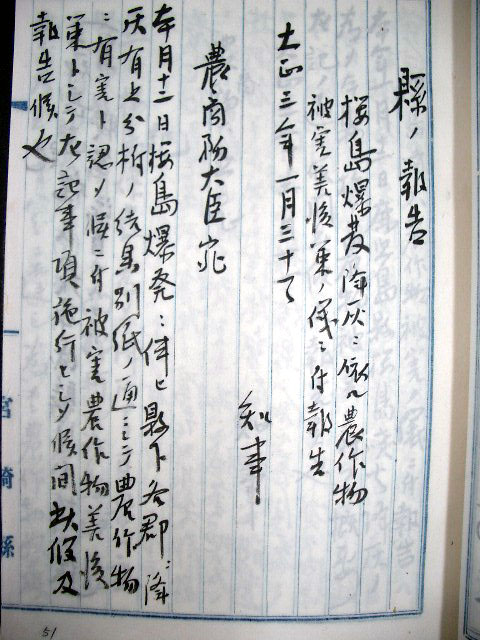 縣ノ報告
桜島爆発降灰ニ依ル農作物
被害善後策ノ儀ニ付報告
大正三年一月三十日
知事
農商務大臣宛
本月十二日桜島爆発ニ伴ヒ県下各郡ニ降
灰有之分析ノ結果別紙ノ通ニシテ農作物
ニ有害ト認メ候ニ付被害農作物善後
策トシテ左記事項施行セシメ候間此段及
報告候也
宮崎縣
51